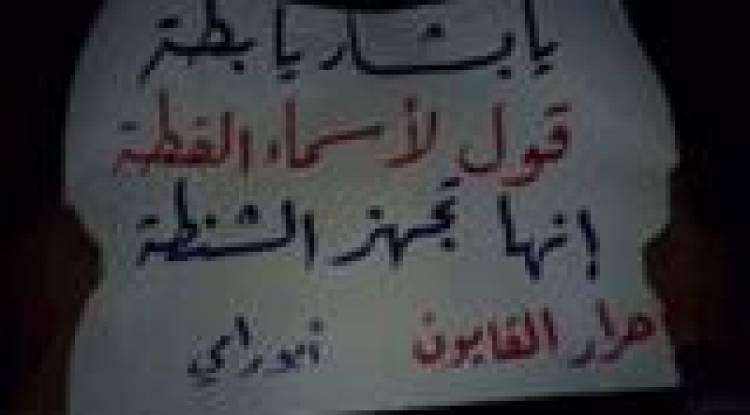 يا بشار يا بطة
قول لأسماء القطة
إنها تجهز الشنطة
حرار القابون أبو رامي